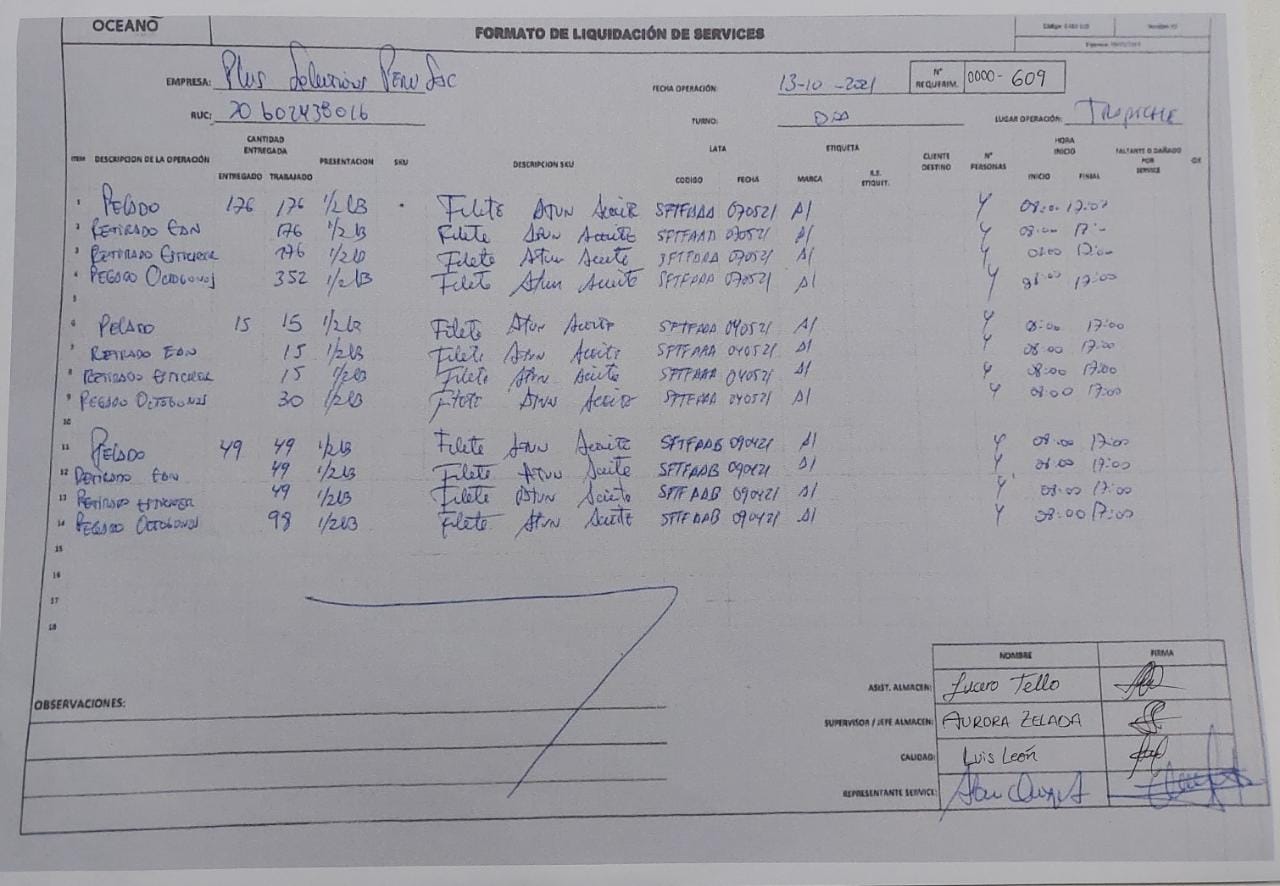 OCEANO
FORMATO DE LIQUIDACIÓN DE SERVICES
EMPRESA: Plus Solutions Peru Sac
FECHA OPERACIÓN: 13-10-2021
N° REQUERIM. 0000-609
RUC: 20602438016
TURNO: DIA
LUGAR OPERACIÓN: TRAPICHE
CANTIDAD ENTREGADA LATA ETIQUETA HORA INICIO
ITEM DESCRIPCION DE LA OPERACIÓN ENTREGADO TRABAJADO PRESENTACION SKU DESCRIPCION SKU CODIGO FECHA MARCA R.S. ETIQUET. CLIENTE DESTINO N° PERSONAS INICIO FINIAL FALTANTE O DAÑADO POR SERVICE
1 PELADO 176 176 1/2 LB Filete ATUN Aceite SFTFAAA 070521 A1 4 08:00 17:00
2 RETIRADO EAN 176 1/2 LB Filete ATUN Aceite SFTFAAA 070521 A1 4 08:00 17:-
3 RETIRADO STICKER 176 1/2 LB Filete Atun Aceite SFTFAAA 070521 A1 4 08:00 17:00
4 PEGADO OCTOGONOS 352 1/2 LB Filete Atun Aceite SFTFAAA 070521 A1 4 08:00 17:00
5
6 PELADO 15 15 1/2 LB Filete ATUN Aceite SFTFAAA 040521 A1 4 08:00 17:00
7 RETIRADO EAN 15 1/2 LB Filete ATUN Aceite SFTFAAA 040521 A1 4 08:00 17:00
8 RETIRADO STICKER 15 1/2 LB Filete ATUN Aceite SFTFAAA 040521 4 08:00 17:00
9 PEGADO OCTOGONOS 30 1/2 LB Filete ATUN Aceite SFTFAAA 040521 A1 4 08:00 17:00
10
11 PELADO 49 49 1/2 LB Filete ATUN Aceite SFTFAAB 090421 A1 4 08:00 17:00
12 RETIRADO EAN 49 1/2 LB Filete ATUN Aceite SFTFAAB 090421 A1 4 08:00 17:00
13 RETIRADO STICKER 49 1/2 LB Filete ATUN Aceite SFTFAAB 090421 A1 4 08:00 17:00
14 PEGADO OCTOGONOS 98 1/2 LB Filete ATUN Aceite SFTFAAB 090421 A1 4 08:00 17:00
15
16
17
18
NOMBRE FIRMA
ASIST. ALMACEN: Lucero Tello
OBSERVACIONES:
SUPERVISOR / JEFE ALMACEN: AURORA ZELADA
CALIDAD: Luis León
REPRESENTANTE SERVICE: